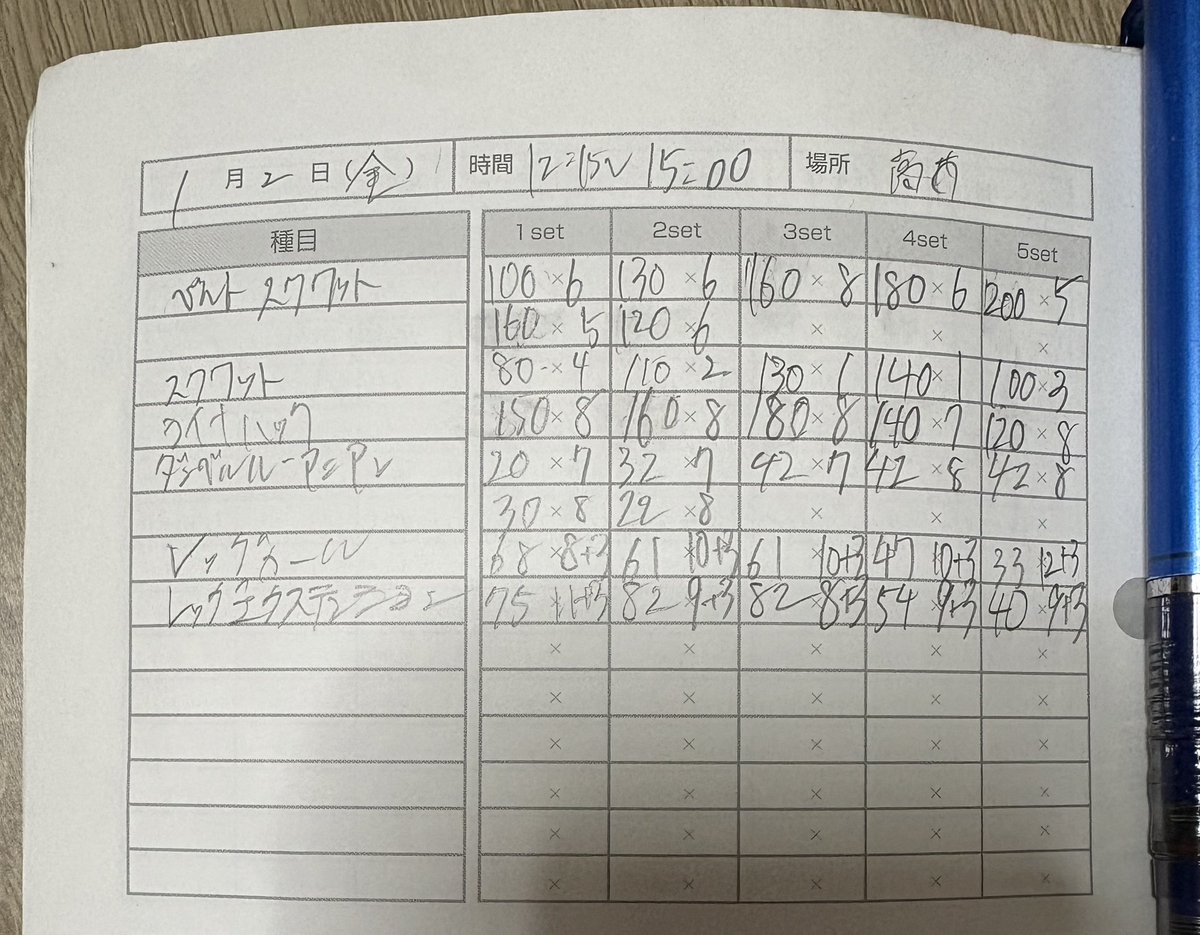 1月2日(金) 時間 12:15~15:00 場所
種目 1set 2set 3set 4set 5set
ベルトスクワット 100×6 130×6 160×8 180×6 200×5
160×5 120×6 × × ×
スクワット 80×4 110×2 130×1 140×1 100×3
ライナハック 150×8 160×8 180×8 140×7 120×8
ダンベルルーマニアン 20×7 32×7 42×7 42×8 42×8
30×8 22×8 × × ×
レッグカール 68×8+3 61×10+3 61×10+3 47×10+3 33×12+3
レッグエクステンション 75×11+3 82×9+3 82×8+3 54×9+3 40×9+3
× × × × ×
× × × × ×
× × × × ×
× × × × ×
× × × × ×
× × × × ×